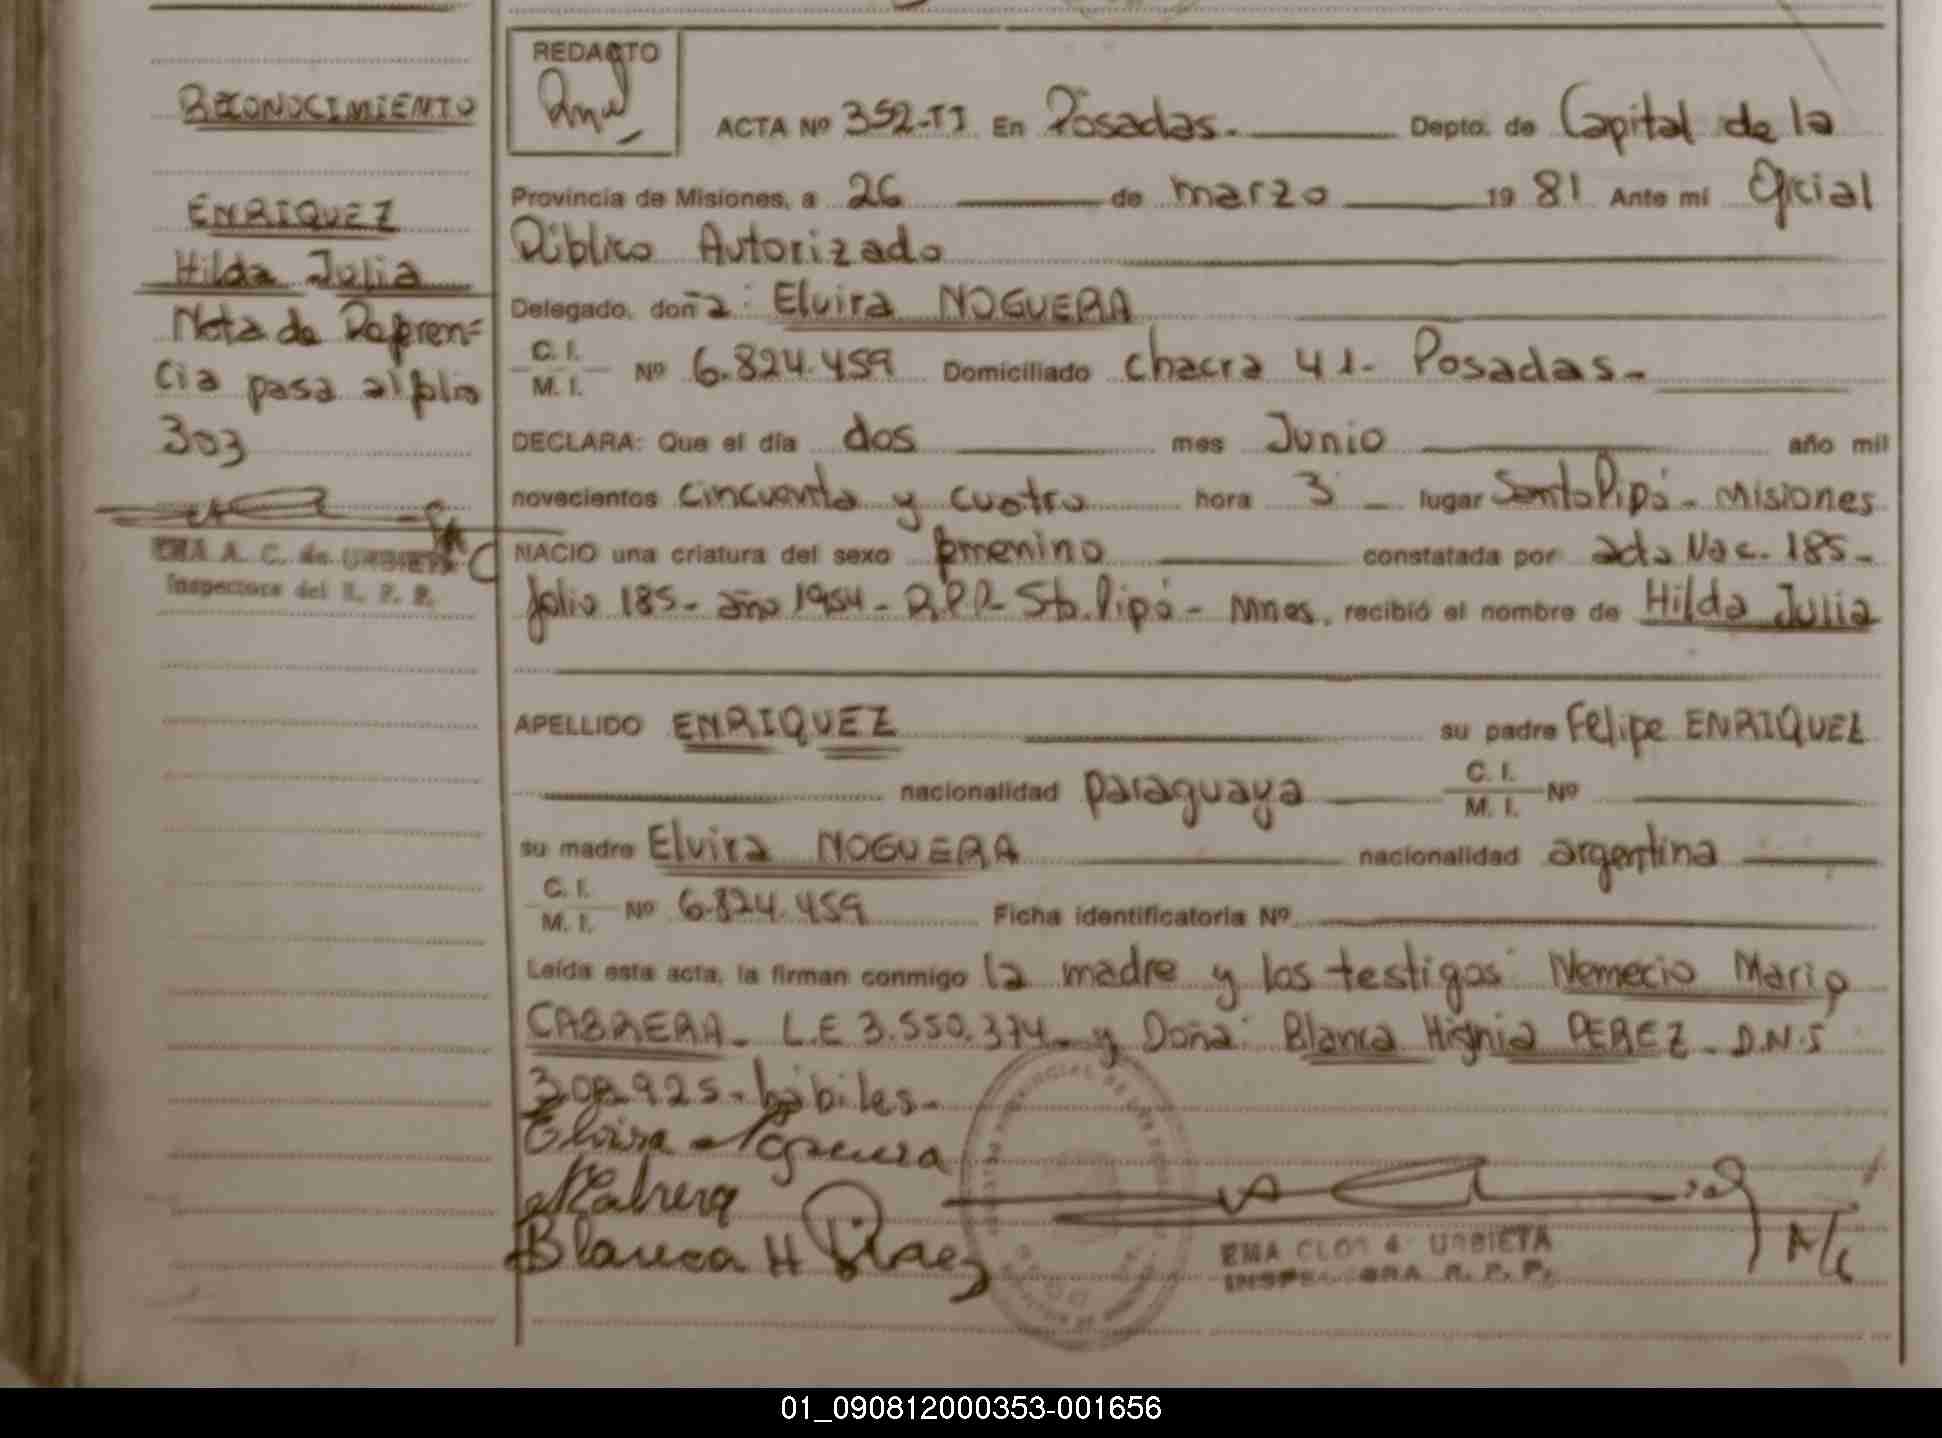 RECONOCIMIENTO
ENRIQUEZ
Hilda Julia
Nota de Referen=
cia pasa al folio
303
EMA A. C. de URBIETA
Inspectora del R. P. P.
REDACTO
ACTA Nº 352-TI En Posadas. Depto. de Capital de la
Provincia de Misiones, a 26 de marzo 19 81 Ante mi Oficial
Público Autorizado
Delegado, doña: Elvira NOGUERA
C. I.
M. I. Nº 6.824.459 Domiciliado chacra 41- Posadas-
DECLARA: Que el día dos mes Junio año mil
novecientos cincuenta y cuatro hora 3 lugar Santo Pipó - Misiones
NACIO una criatura del sexo femenino constatada por acta Nac. 185-
folio 185- año 1954- R.P.P- Sto. Pipó - Mnes. recibió el nombre de Hilda Julia
APELLIDO ENRIQUEZ su padre Felipe ENRIQUEZ
nacionalidad paraguaya C. I. M. I. Nº
su madre Elvira NOGUERA nacionalidad argentina
C. I.
M. I. Nº 6.824.459 Ficha identificatoria Nº
Leída esta acta, la firman conmigo la madre y los testigos: Nemecio Mario
CABRERA- L.E 3.550.374- y Doña: Blanca Higinia PEREZ - D.N.I
308.925- hábiles-
Elvira Noguera
NCabrera
Blanca H Pérez
EMA CLOT A URBIETA
INSPECTORA R. P. P.
01_090812000353-001656